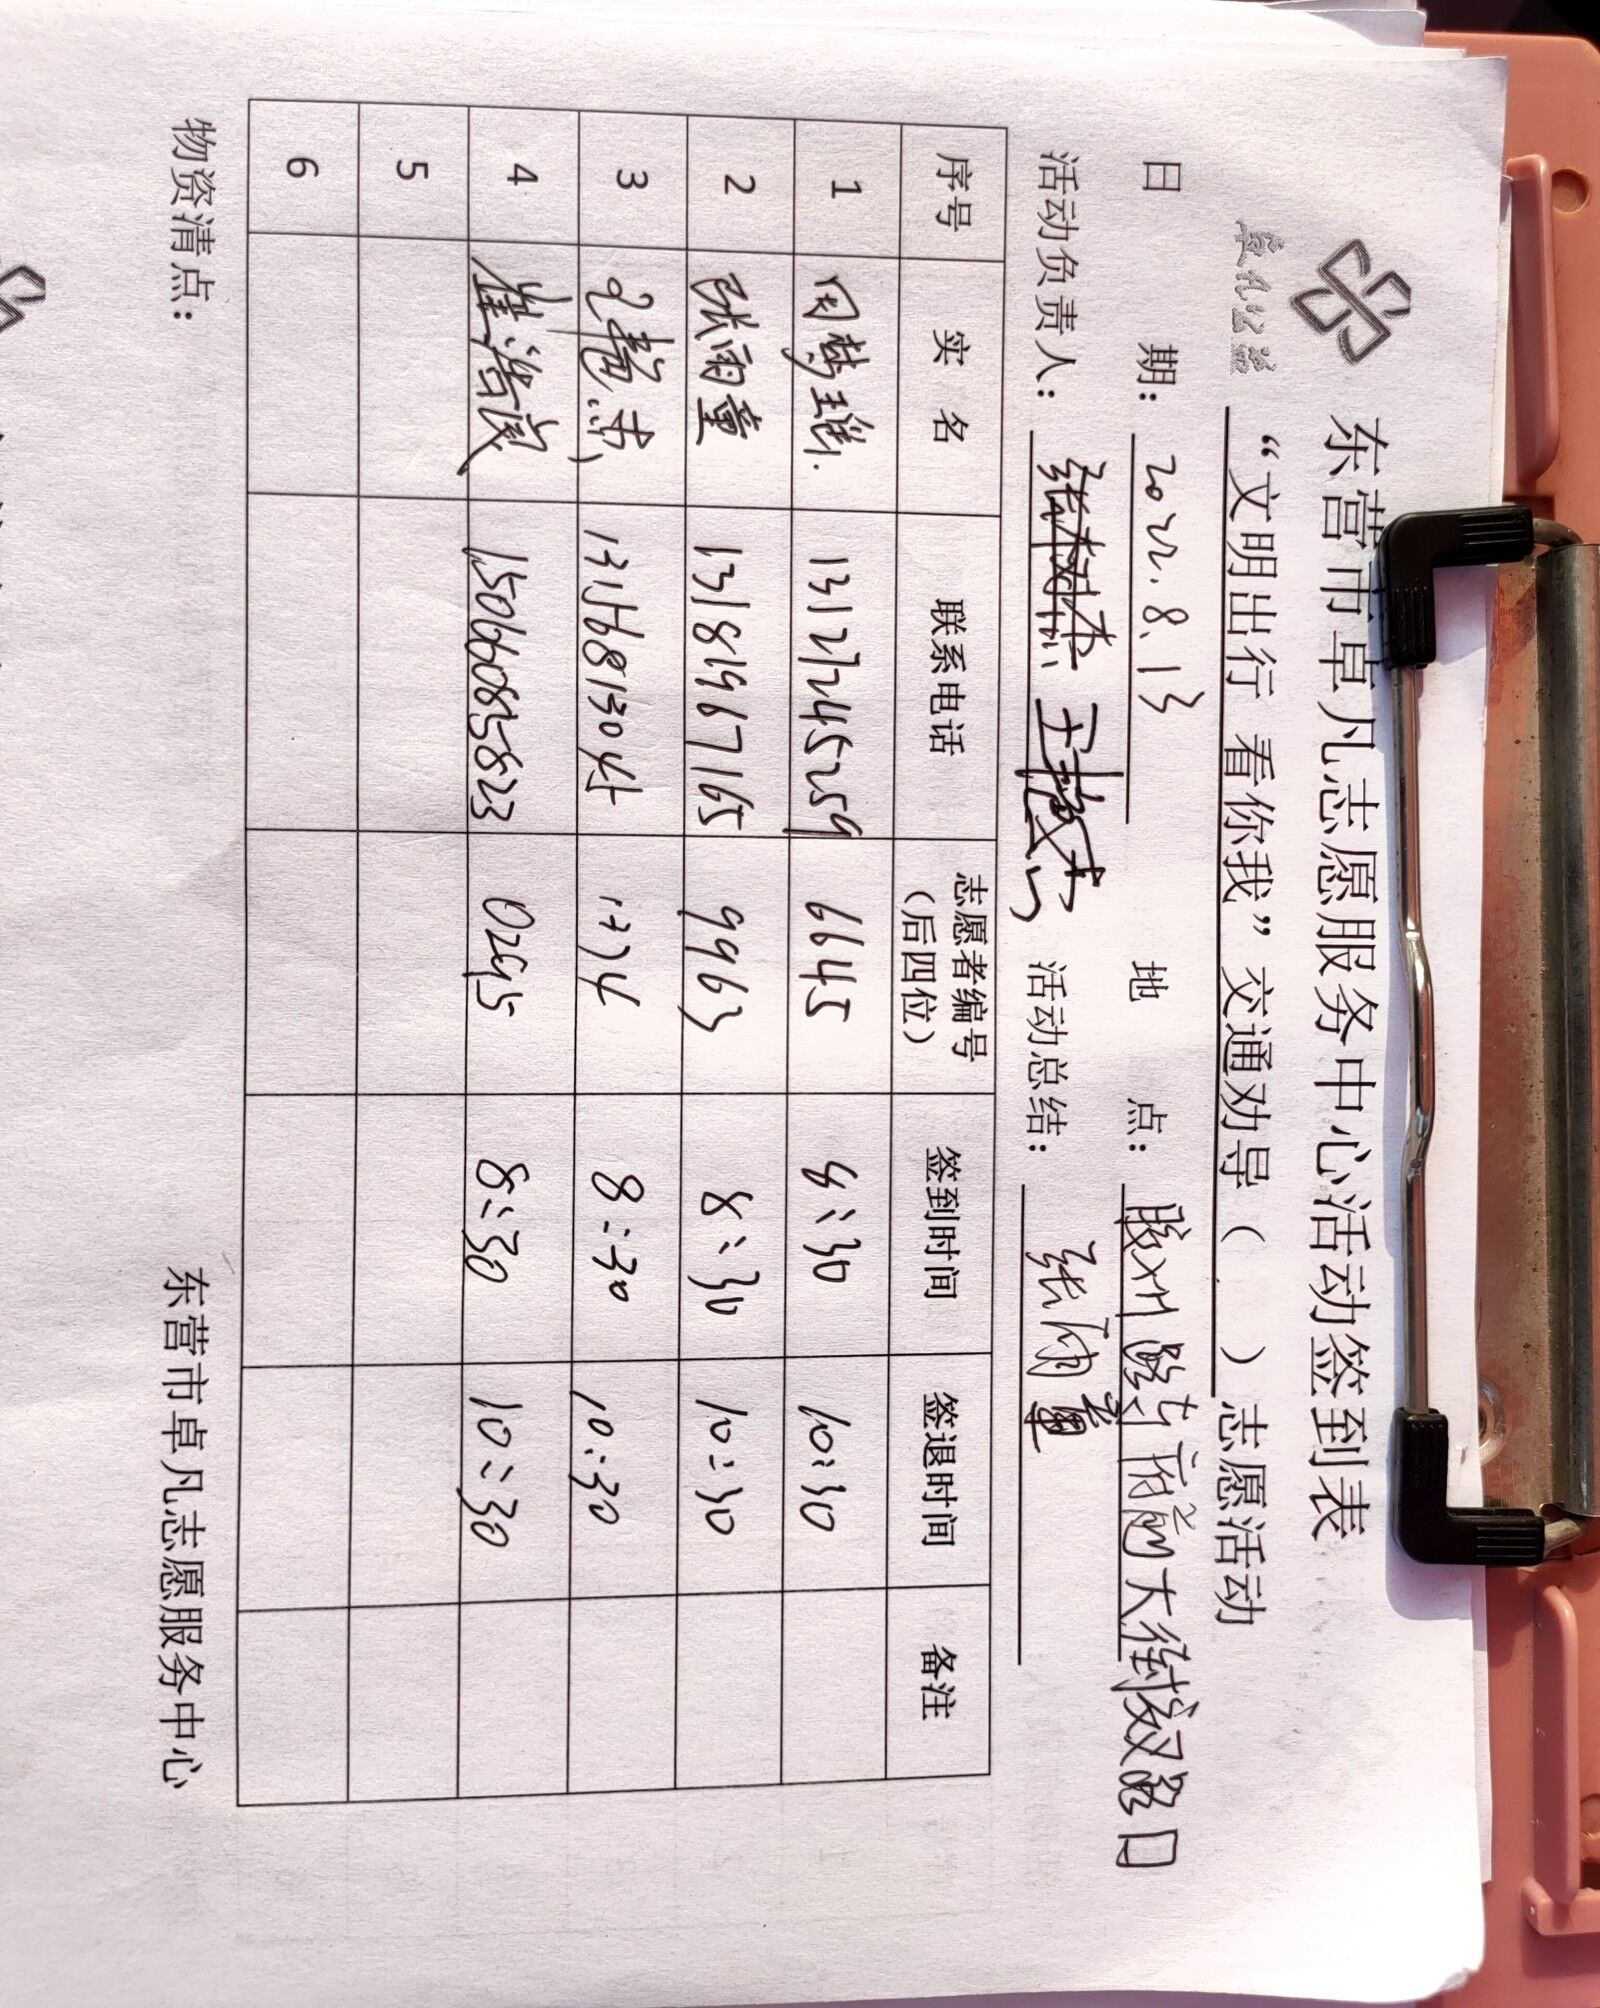 卓凡公益
东营市卓凡志愿服务中心活动签到表
“文明出行 看你我”交通劝导（ ）志愿活动
日 期：2022.8.13 地 点：胶州路与府前大街交叉路口
活动负责人：张树杰 王 活动总结：张雨童
序号 实 名 联系电话 志愿者编号（后四位） 签到时间 签退时间 备注
1 周梦 13127245259 6645 8:30 10:30
2 张雨童 13181967165 9963 8:30 10:30
3 8:30 10:30
4 崔浩 15066085823 0295 8:30 10:30
5
6
物资清点：
东营市卓凡志愿服务中心